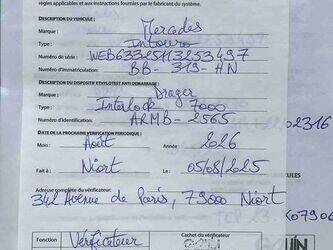 règles applicables et aux instructions fournies par le fabricant du système.
DESCRIPTION DU VÉHICULE :
Marque : Mercedes
Type : Intouro
Numéro de série : WEB63325113253497
Numéro d'immatriculation : BB-319-HN
DESCRIPTION DU DISPOSITIF ETHYLOTEST ANTI DEMARRAGE :
Marque : Drager
Type : Interlock 7000
Numéro : ARMB-2565
02316
DATE DE LA PROCHAINE VERIFICATION PERIODIQUE :
Mois : Août Année : 2026
Fait à : Niort Le : 05/08/2025
CULES
Adresse complète du vérificateur :
342 Avenue de Paris, 79000 Niort
07906
Fonction Vérificateur Cachet du vérificateur